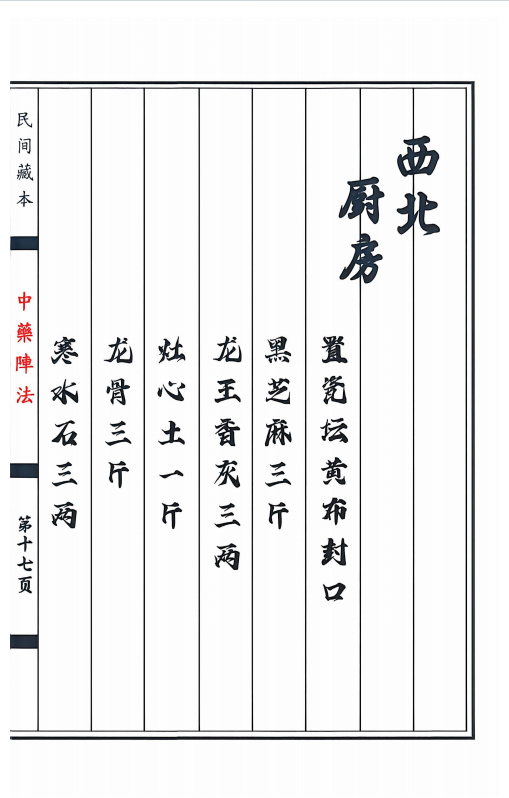 西北
厨房
置瓷坛黄布封口
黑芝麻三斤
龙王香灰三两
灶心土一斤
龙骨三斤
寒水石三两
民间藏本
中藥陣法
第十七页